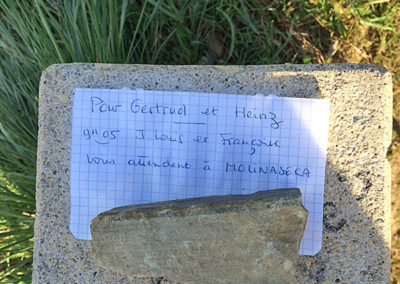 Pour Gertrud et Heinz
9H05 J. Louis et Françoise
Vous attendent à MOLINASECA